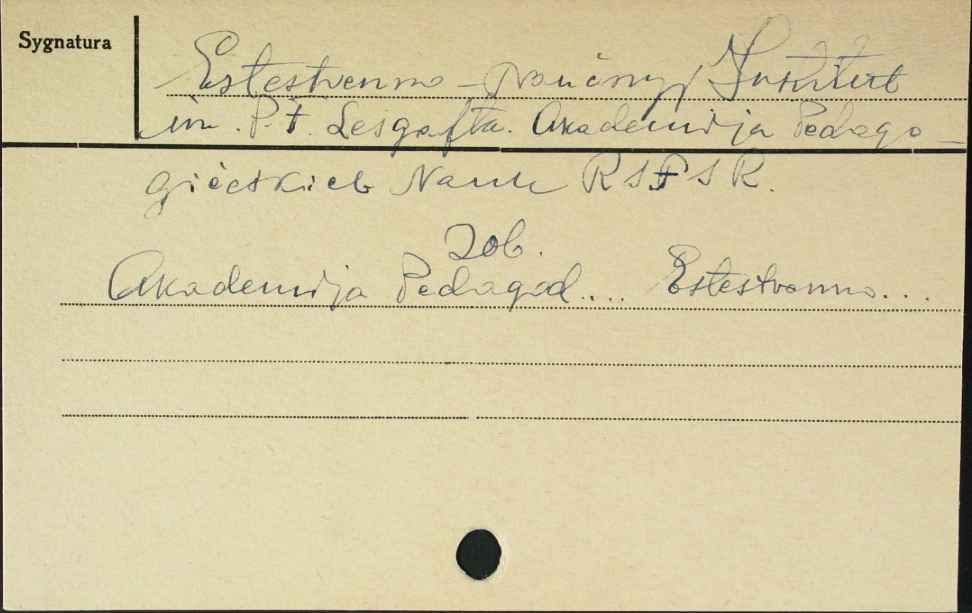 Sygnatura
Estestvenno-naučnyj Institut
im. P. F. Lesgafta. Akademija Pedago-
gičeskich Nauk RSFSR.
Zob.
Akademija Pedagog.... Estestvenno...